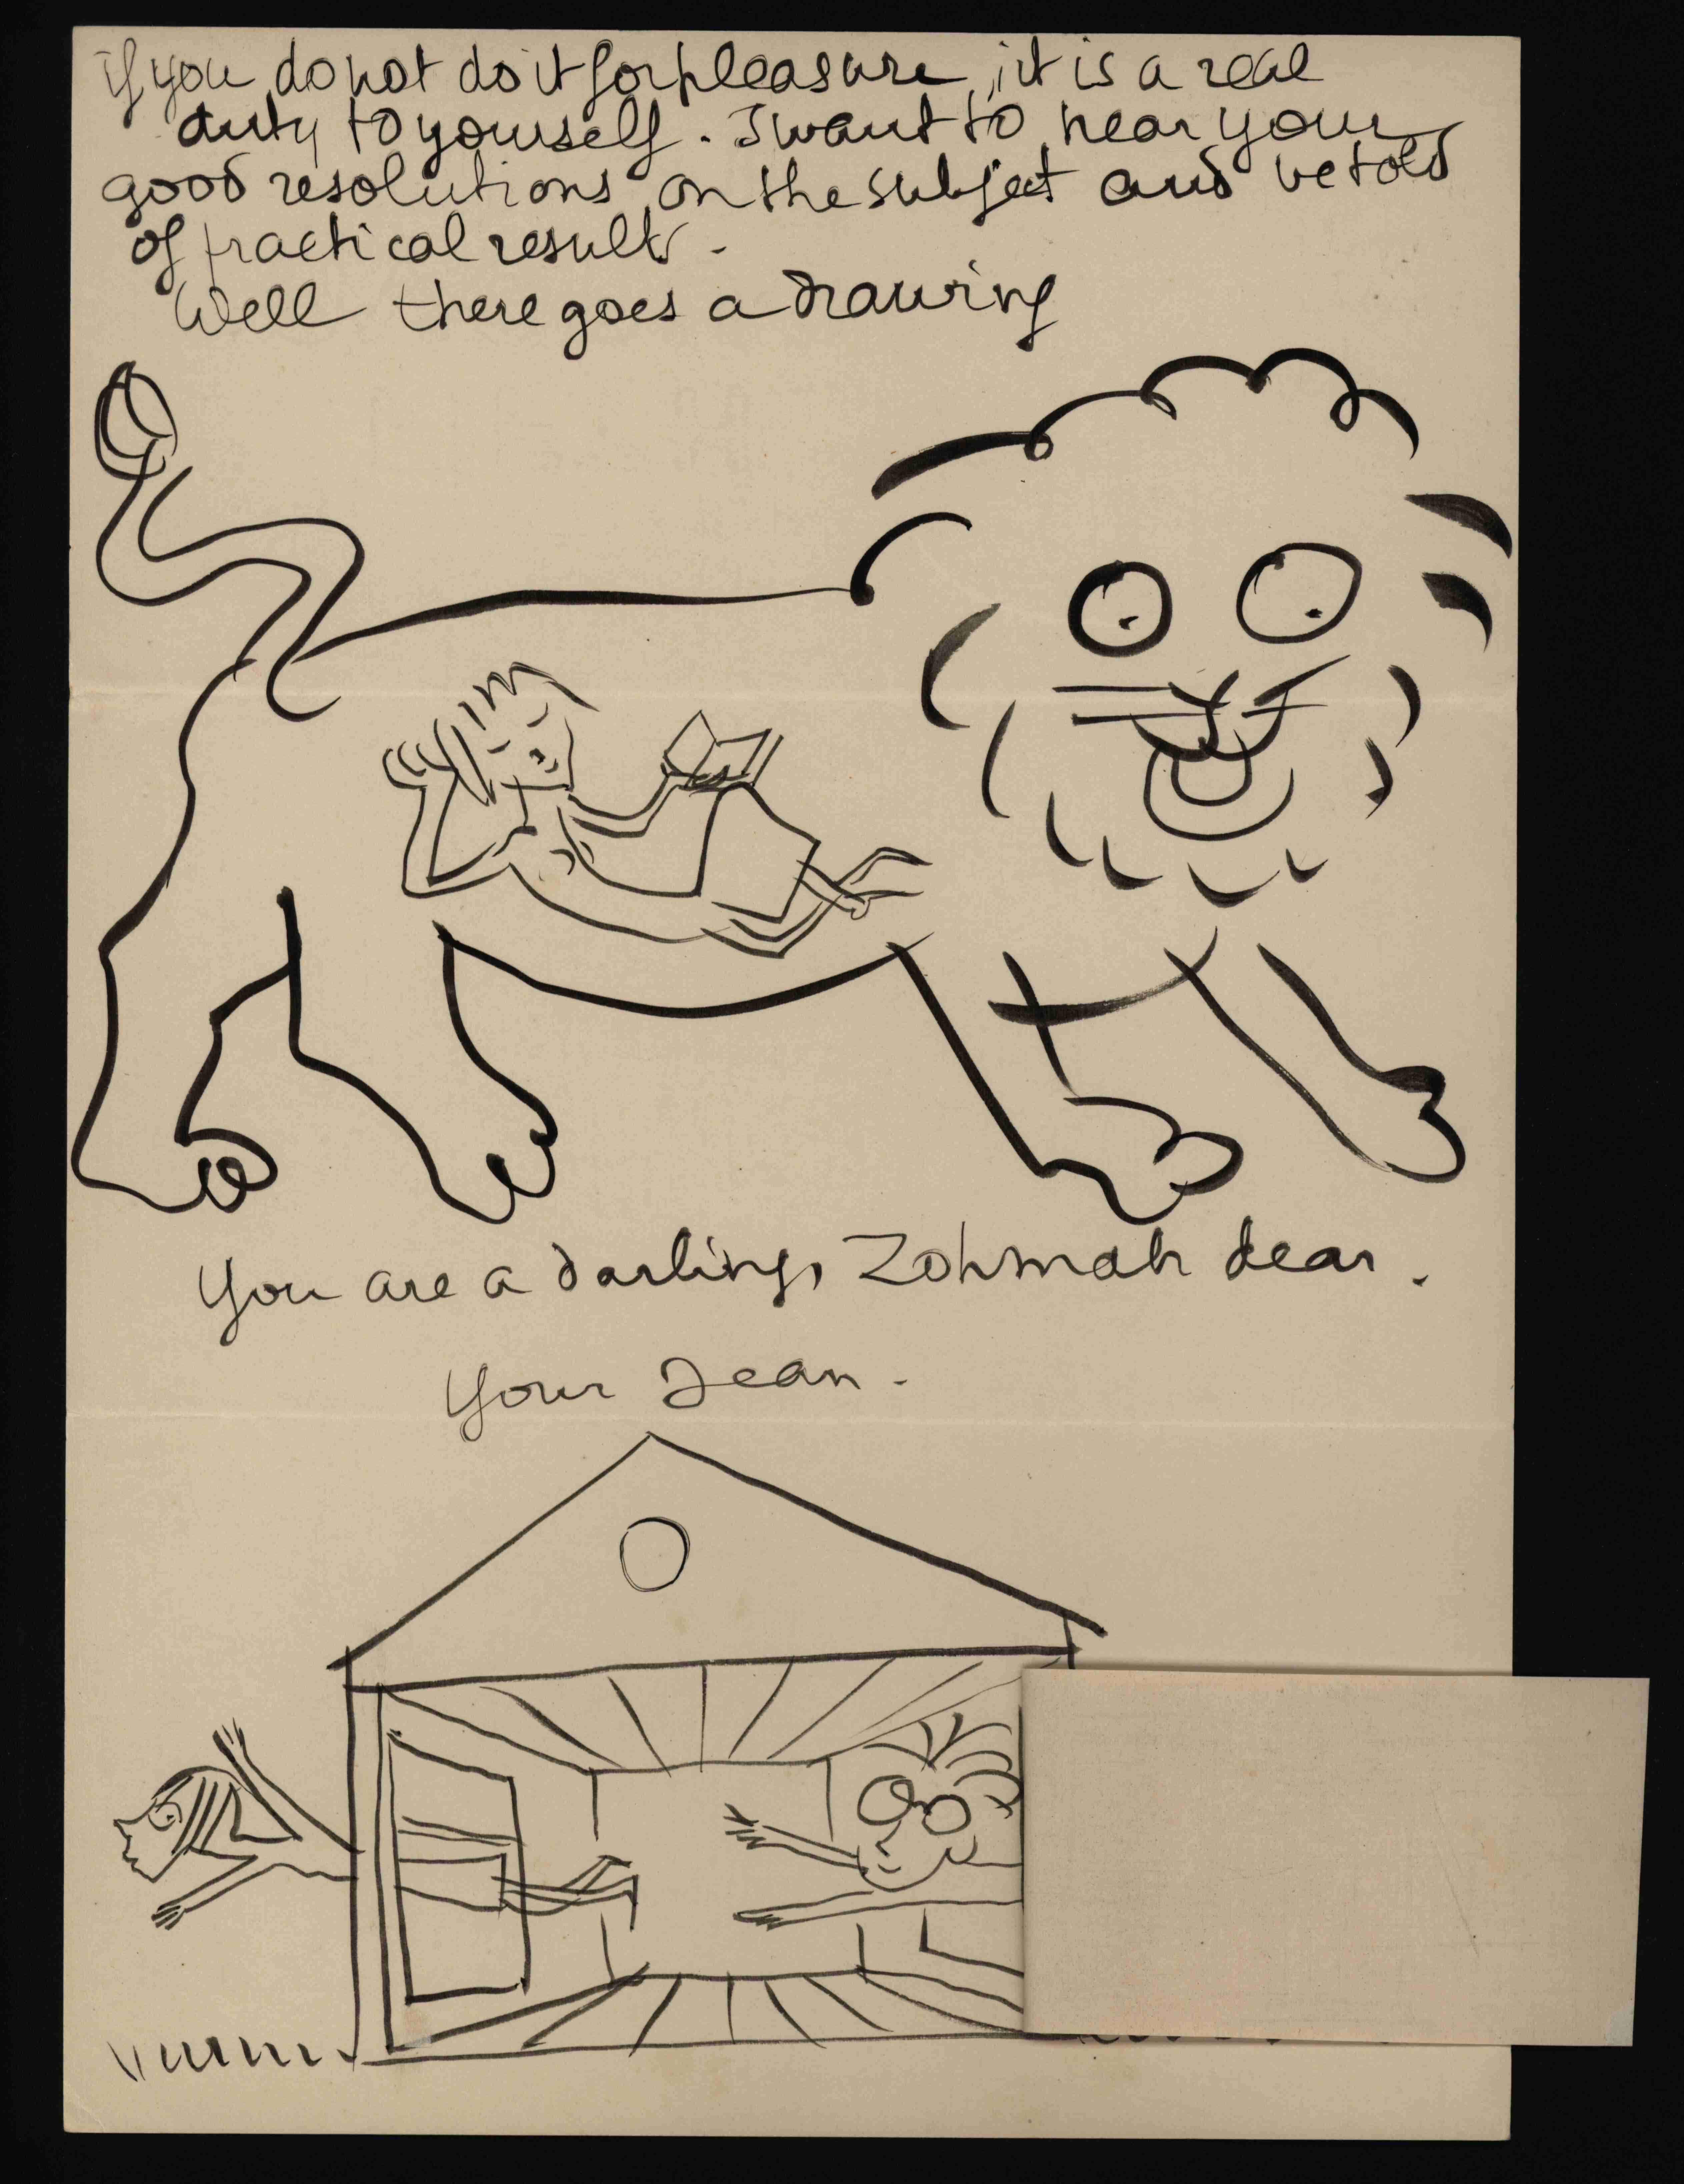 if you do not do it for pleasure, it is a real
duty to yourself. I want to hear your
good resolutions on the subject and be told
of practical result.
Well there goes a drawing
You are a darling, Zohmah dear.
Your Jean.